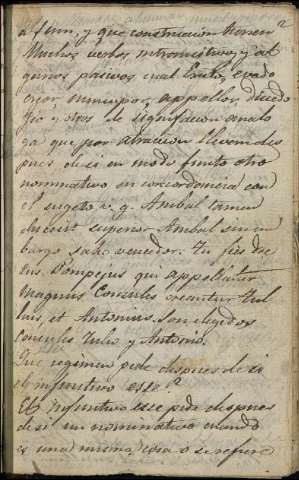 al fum, y que construccion tienen
Muchos verbos intransitivos y al
gunos pasivos cual fueho, evado
nuncupor, appellor, discedo
fio y otros de significacion analo
ga que por atraccion llevan des
pues de si en modo finito otro
nominativo en concordancia con
el sugeto v. g. Anibal tamen
discesit superior Anibal sin em
bargo salio vencedor. tu fies do
lus. Pompejus qui appellatur
Magnus Consules creantur Tul
lius, et Antonius. son elegidos
consules Tulio y Antonio.
Que regimen pide despues de si
el infinitivo esse?
El infinitivo esse pide despues
de si un nominativo cuando
es una misma cosa o se refiere